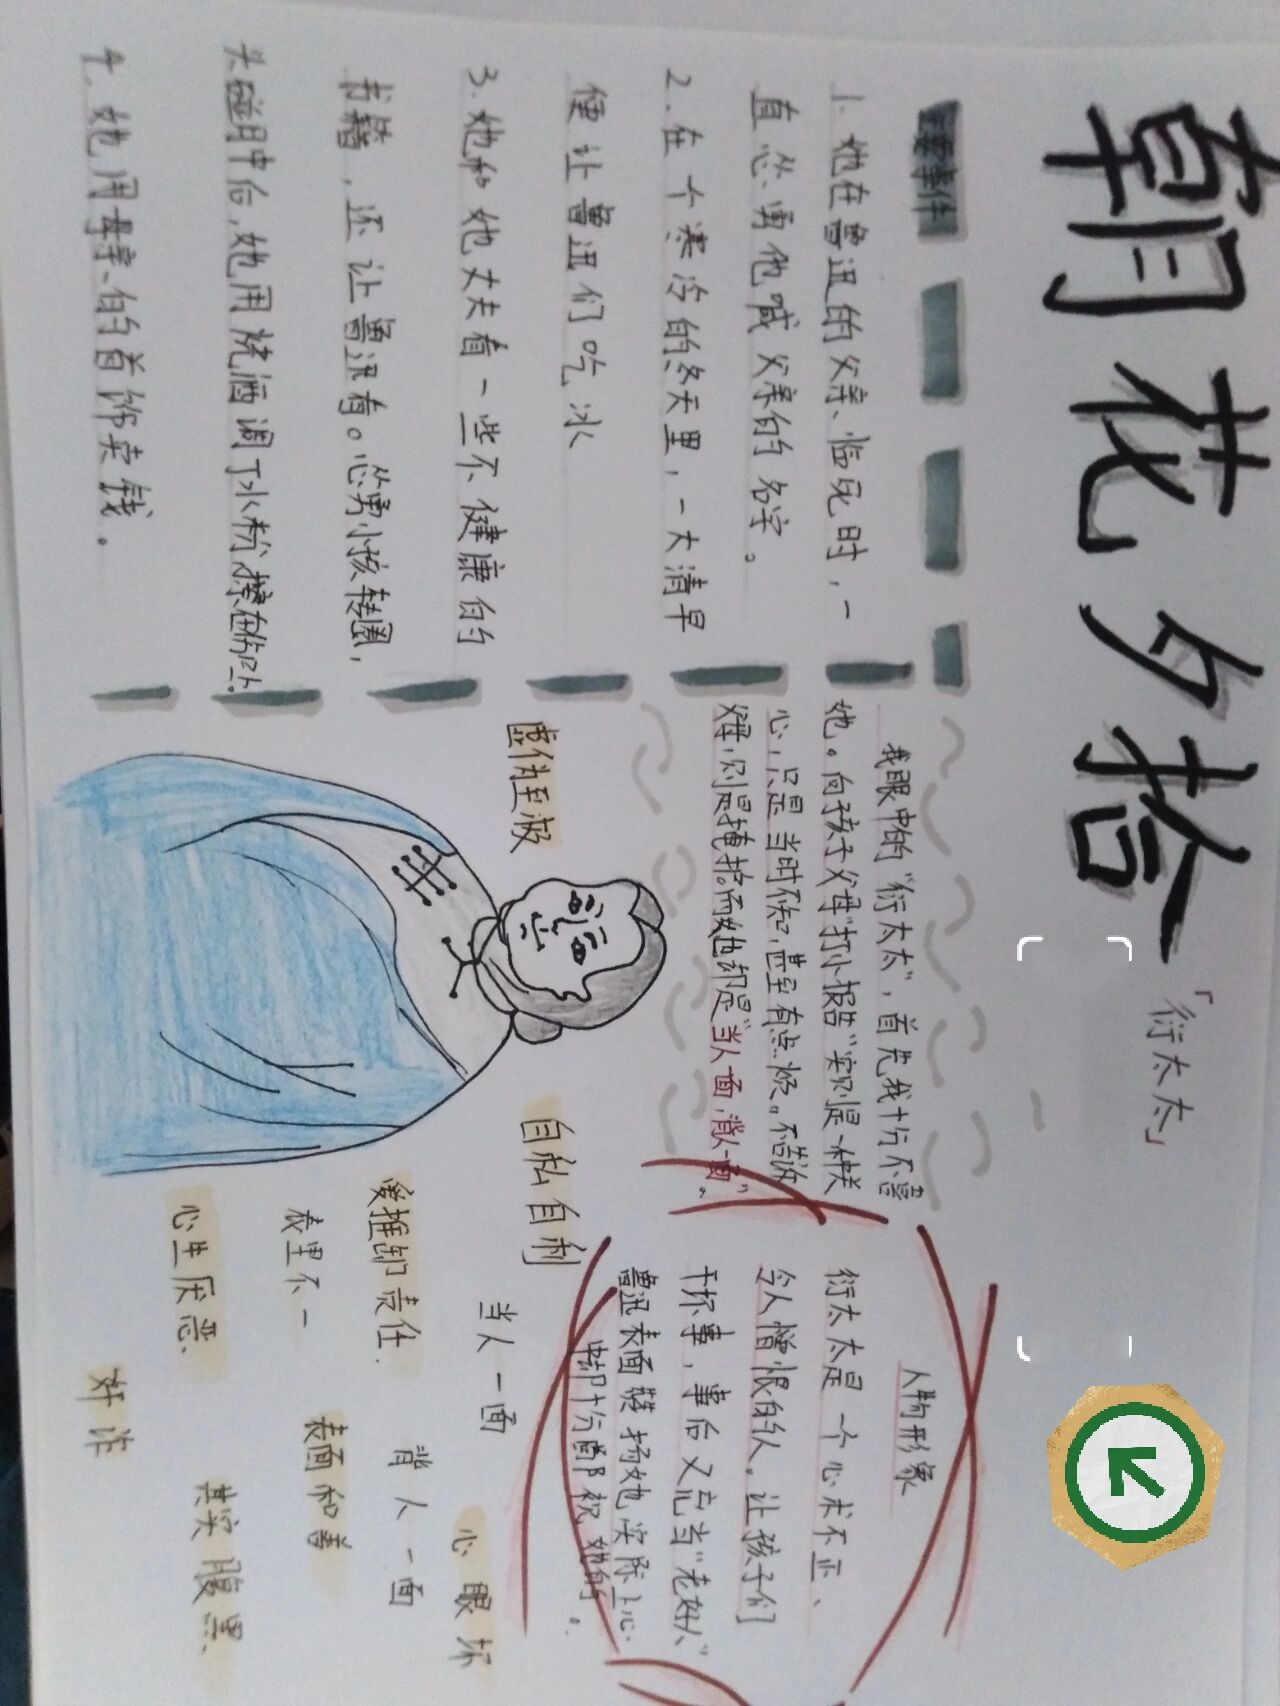 朝花夕拾
「衍太太」
主要事件
1. 她在鲁迅的父亲、临死时，一
直怂勇他喊父亲的名字。
2. 在个寒冷的冬天里，一大清早
便让鲁迅们吃冰
3. 她和她丈夫看一些不健康的
书籍，还让鲁迅看。怂勇小孩转圈，
头碰肿后，她用烧酒调了水粉，擦在伤口上。
4. 她用母亲的首饰卖钱。
我眼中的“衍太太”，首先我十分不喜
她。向孩子父母“打小报告”实则是一种关
心，只是当时不知，甚至有点烦。不告诉
父母，则是掩护。而她却是“当人面，背人一面”。
人物形象
衍太太是一个心术不正、
令人憎恨的人。让孩子们
干坏事，事后又充当“老好人”
鲁迅表面赞扬她实际上心
中却十分鄙视她的。
虚伪至极
自私自利
爱推卸责任.
表里不一
心生厌恶.
当人一面
背人一面
心眼坏
表面和善
其实腹黑.
奸诈